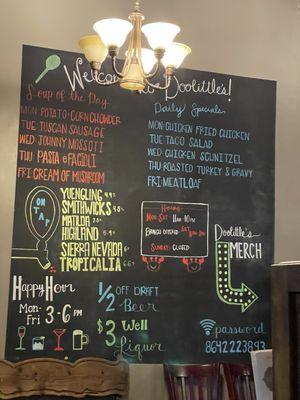 Welcome to Doolittle's!
Soup of the Day
MON-POTATO-CORN CHOWDER
TUE TUSCAN SAUSAGE
WED JOHNNY MOSSOTI
THU PASTA e FAGIOLI
FRI-CREAM OF MUSHROOM
Daily Specials
MON-CHICKEN FRIED CHICKEN
TUE-TACO SALAD
WED-CHICKEN SCHNITZEL
THU ROASTED TURKEY & GRAVY
FRI-MEATLOAF
ON TAP
YUENGLING
SMITHWICKS
MATILDA
HIGHLAND
SIERRA NEVADA
TROPICALIA
Hours
MON-SAT 11AM-10PM
SUNDAY: CLOSED
Doolittle's
MERCH
Happy Hour
Mon-Fri 3-6 PM
1/2 OFF DRAFT
Beer
$3 Well
Liquor
password
8642223893